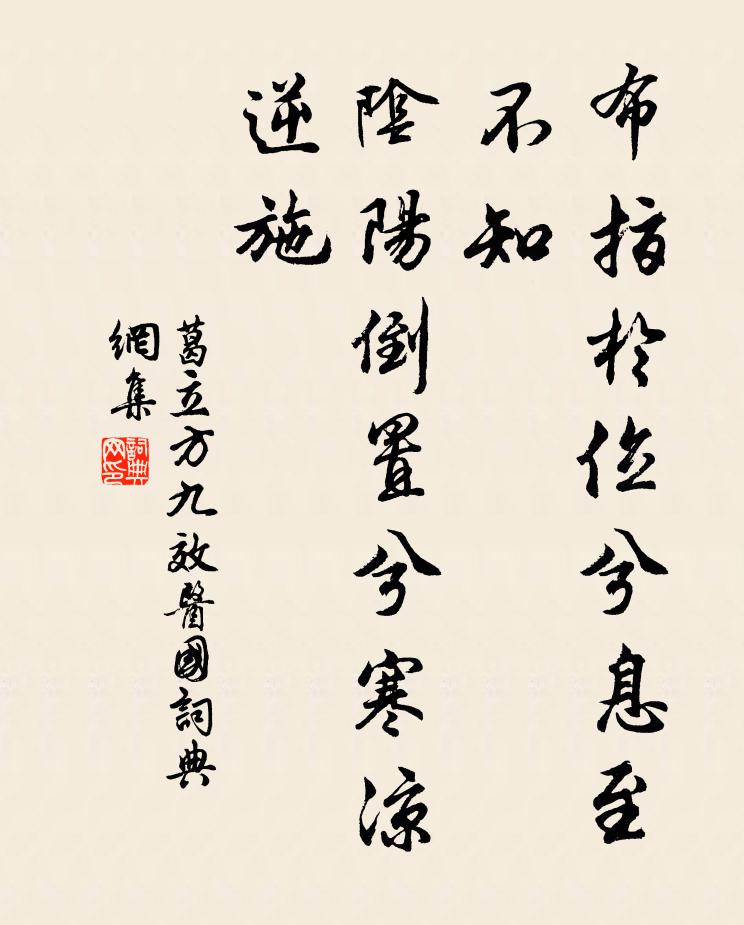 布指於位兮息至
不知
陰陽倒置兮寒涼
逆施
葛立方九效醫國詞典
網集
詞典
网印